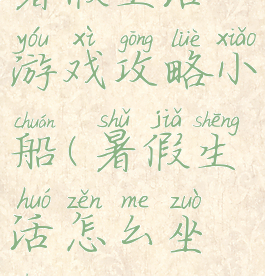 yóu xì gōng lüè xiǎo
游戏攻略小
chuán shǔ jiǎ shēng
船(暑假生
huó zěn me zuò
活怎么坐